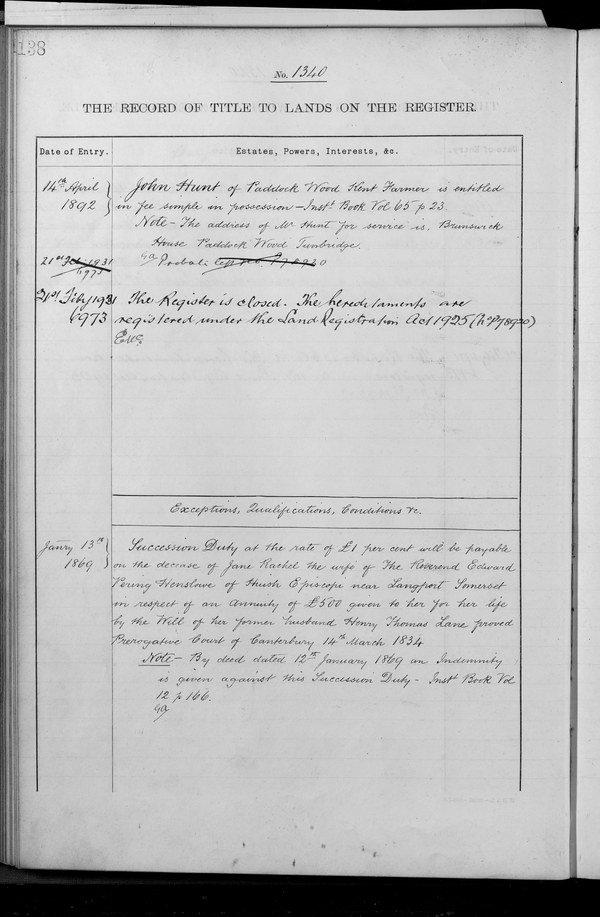 138
No. 1340
THE RECORD OF TITLE TO LANDS ON THE REGISTER.
Date of Entry.
Estates, Powers, Interests, &c.
14th April
1892
John Hunt of Paddock Wood Kent Farmer is entitled
in fee simple in possession – Inst Book Vol 65 p 23.
Note – The address of Mr Hunt for service is, Brunswick
House Paddock Wood Tunbridge.
21st Feb 1931
6973
21st Feby 1931
6973
The Register is closed. The hereditaments are
registered under the Land Registration Act 1925 (No P78920)
Exceptions, Qualifications, Conditions &c.
Janry 13th
1869
Succession Duty at the rate of £1 per cent will be payable
on the decease of Jane Rachel the wife of The Reverend Edward
Pering Henslowe of Huish Episcopi near Langport Somerset
in respect of an Annuity of £500 given to her for her life
by the Will of her former husband Henry Thomas Lane proved
Prerogative Court of Canterbury 14th March 1834
Note – By deed dated 12th January 1869 an Indemnity
is given against this Succession Duty – Inst Book Vol
12 p 166.